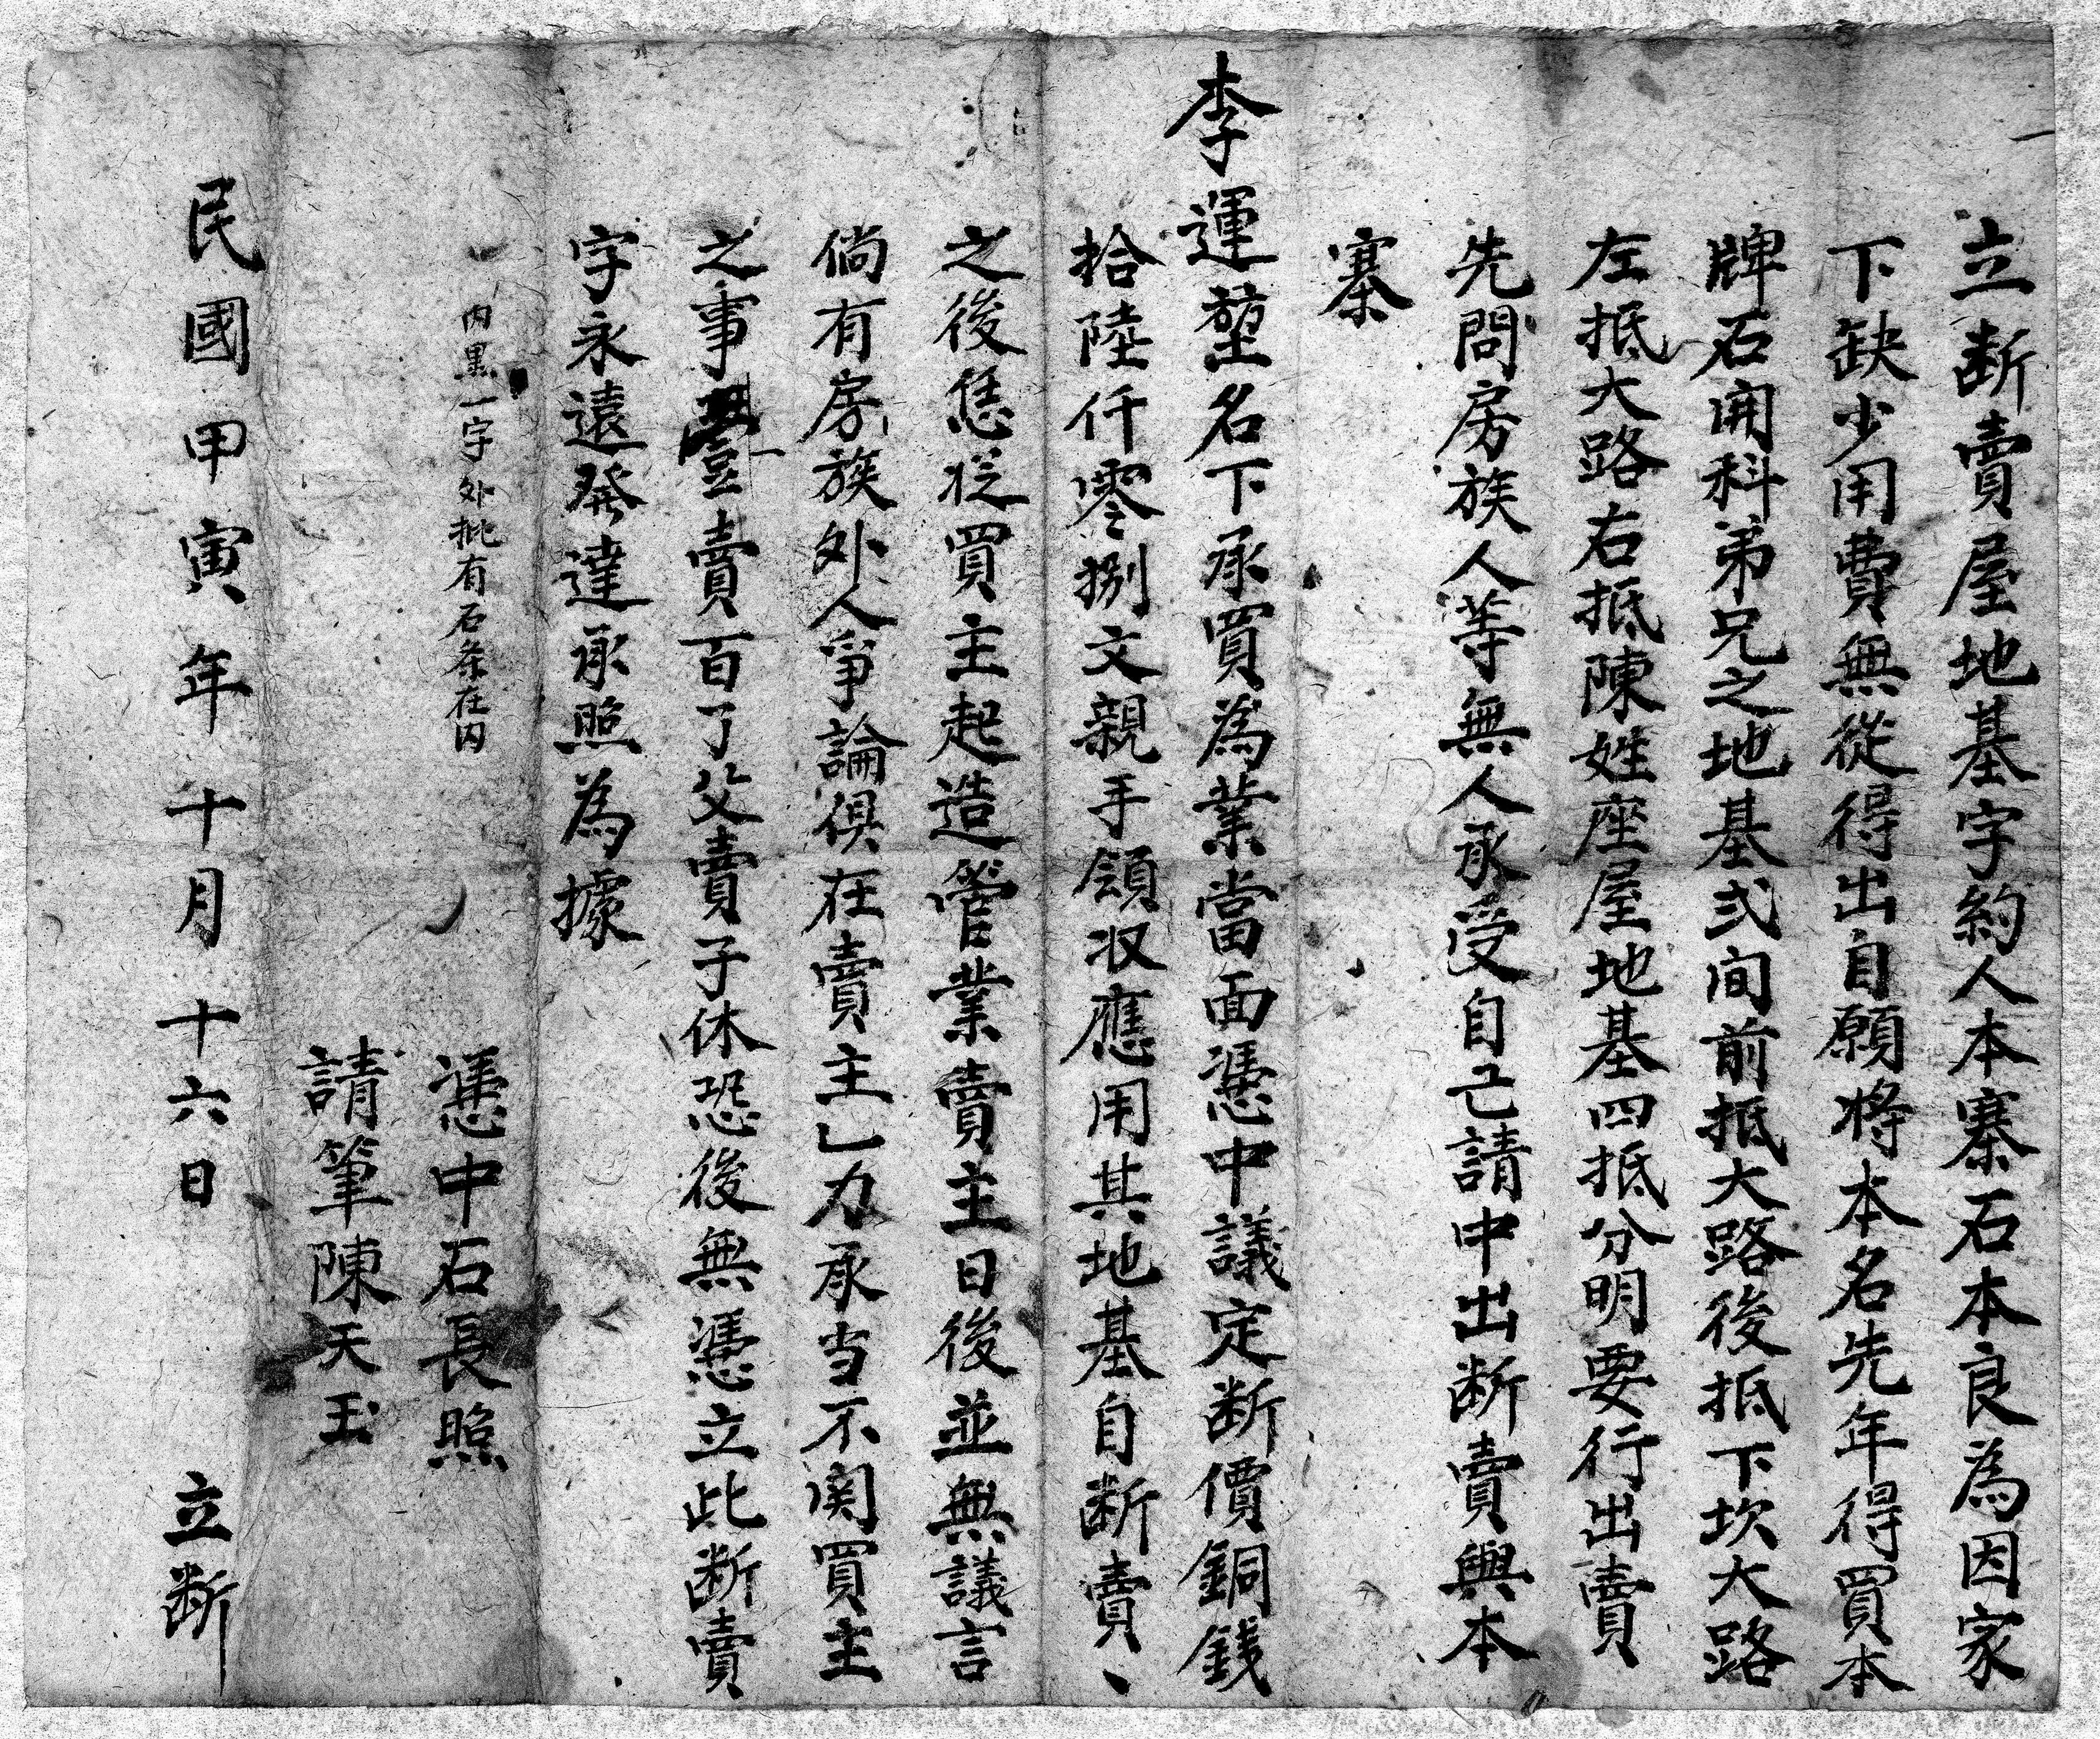 立断賣屋地基字約人本寨石本良為因家
下缺少用費無從得出自願将本名先年得買本
牌石開科弟兄之地基弍间前抵大路後抵下坎大路
左抵大路右抵陳姓座屋地基四抵分明要行出賣
先問房族人等無人承受自己請中出断賣與本
寨
李運堃名下承買為業當面憑中議定断價銅銭
拾陸仟零捌文親手領收應用其地基自断賣、
之後恁從買主起造管業賣主日後並無議言
倘有房族外人爭論俱在賣主乚力承当不関買主
之事壹賣百了父賣子休恐後無憑立此断賣
字永遠發達承照為據
内黒一字外批有石条在内
憑中石長照
請筆陳天玉
民國甲寅年十月十六日立断